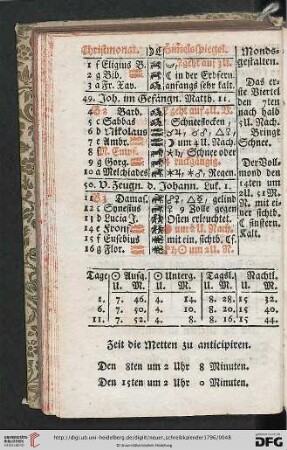 Christmonat. Himelsspiegel. Monds-
gestalten.
1 f Eligius B. geht auf 3 U.
2 g Bib. ☾ in der Erdfern.
3 a Fr. Xav. anfangs sehr kalt.
49. Joh. im Gefängn. Matth. 11.
4 Barb. geht auf 4 U.
5 c Sabbas Schneeflocken
6 d Nikolaus
7 e Ambr. um 4 U. Nach.
8 f M. Empf. Schnee oder
9 g Gorg. rückgängig.
10 a Melchiades Regen.
50. V. Zeugn. d. Johann. Luk. 1.
11 Damas. gelind
12 c Synesius 9 Zolle gegen
13 d Lucia J. Osten erleuchtet.
14 e Fronf um 2 U. Nach.
15 f Eusebius mit ein. sichtb. ☾f.
16 g Flor. um 2 U. Nach.
Das er-
ste Viertel
den 7ten
nach halb
5 U. Nach.
Bringt
Schnee.
Der Voll-
mond den
14ten um
2 U. N.
mit ei-
ner sichtb.
☾ finstern.
Kalt.
Tage ☉ Aufg. ☉ Unterg. Tagsl. Nachtl.
U. M. U. M. U. M. U. M.
1. 7. 46. 4. 14. 8. 28. 15 32.
6. 7. 50. 4. 10. 8. 20. 15 40.
11. 7. 52. 4. 8. 8. 16. 15 44.
Zeit die Metten zu anticipiren.
Den 8ten um 2 Uhr 8 Minuten.
Den 15ten um 2 Uhr 0 Minuten.
UNIVERSITÄTS-
BIBLIOTHEK
HEIDELBERG
http://digi.ub.uni-heidelberg.de/diglit/neuer_schreibkalender1796/0048
© Universitätsbibliothek Heidelberg
gefördert durch die
DFG